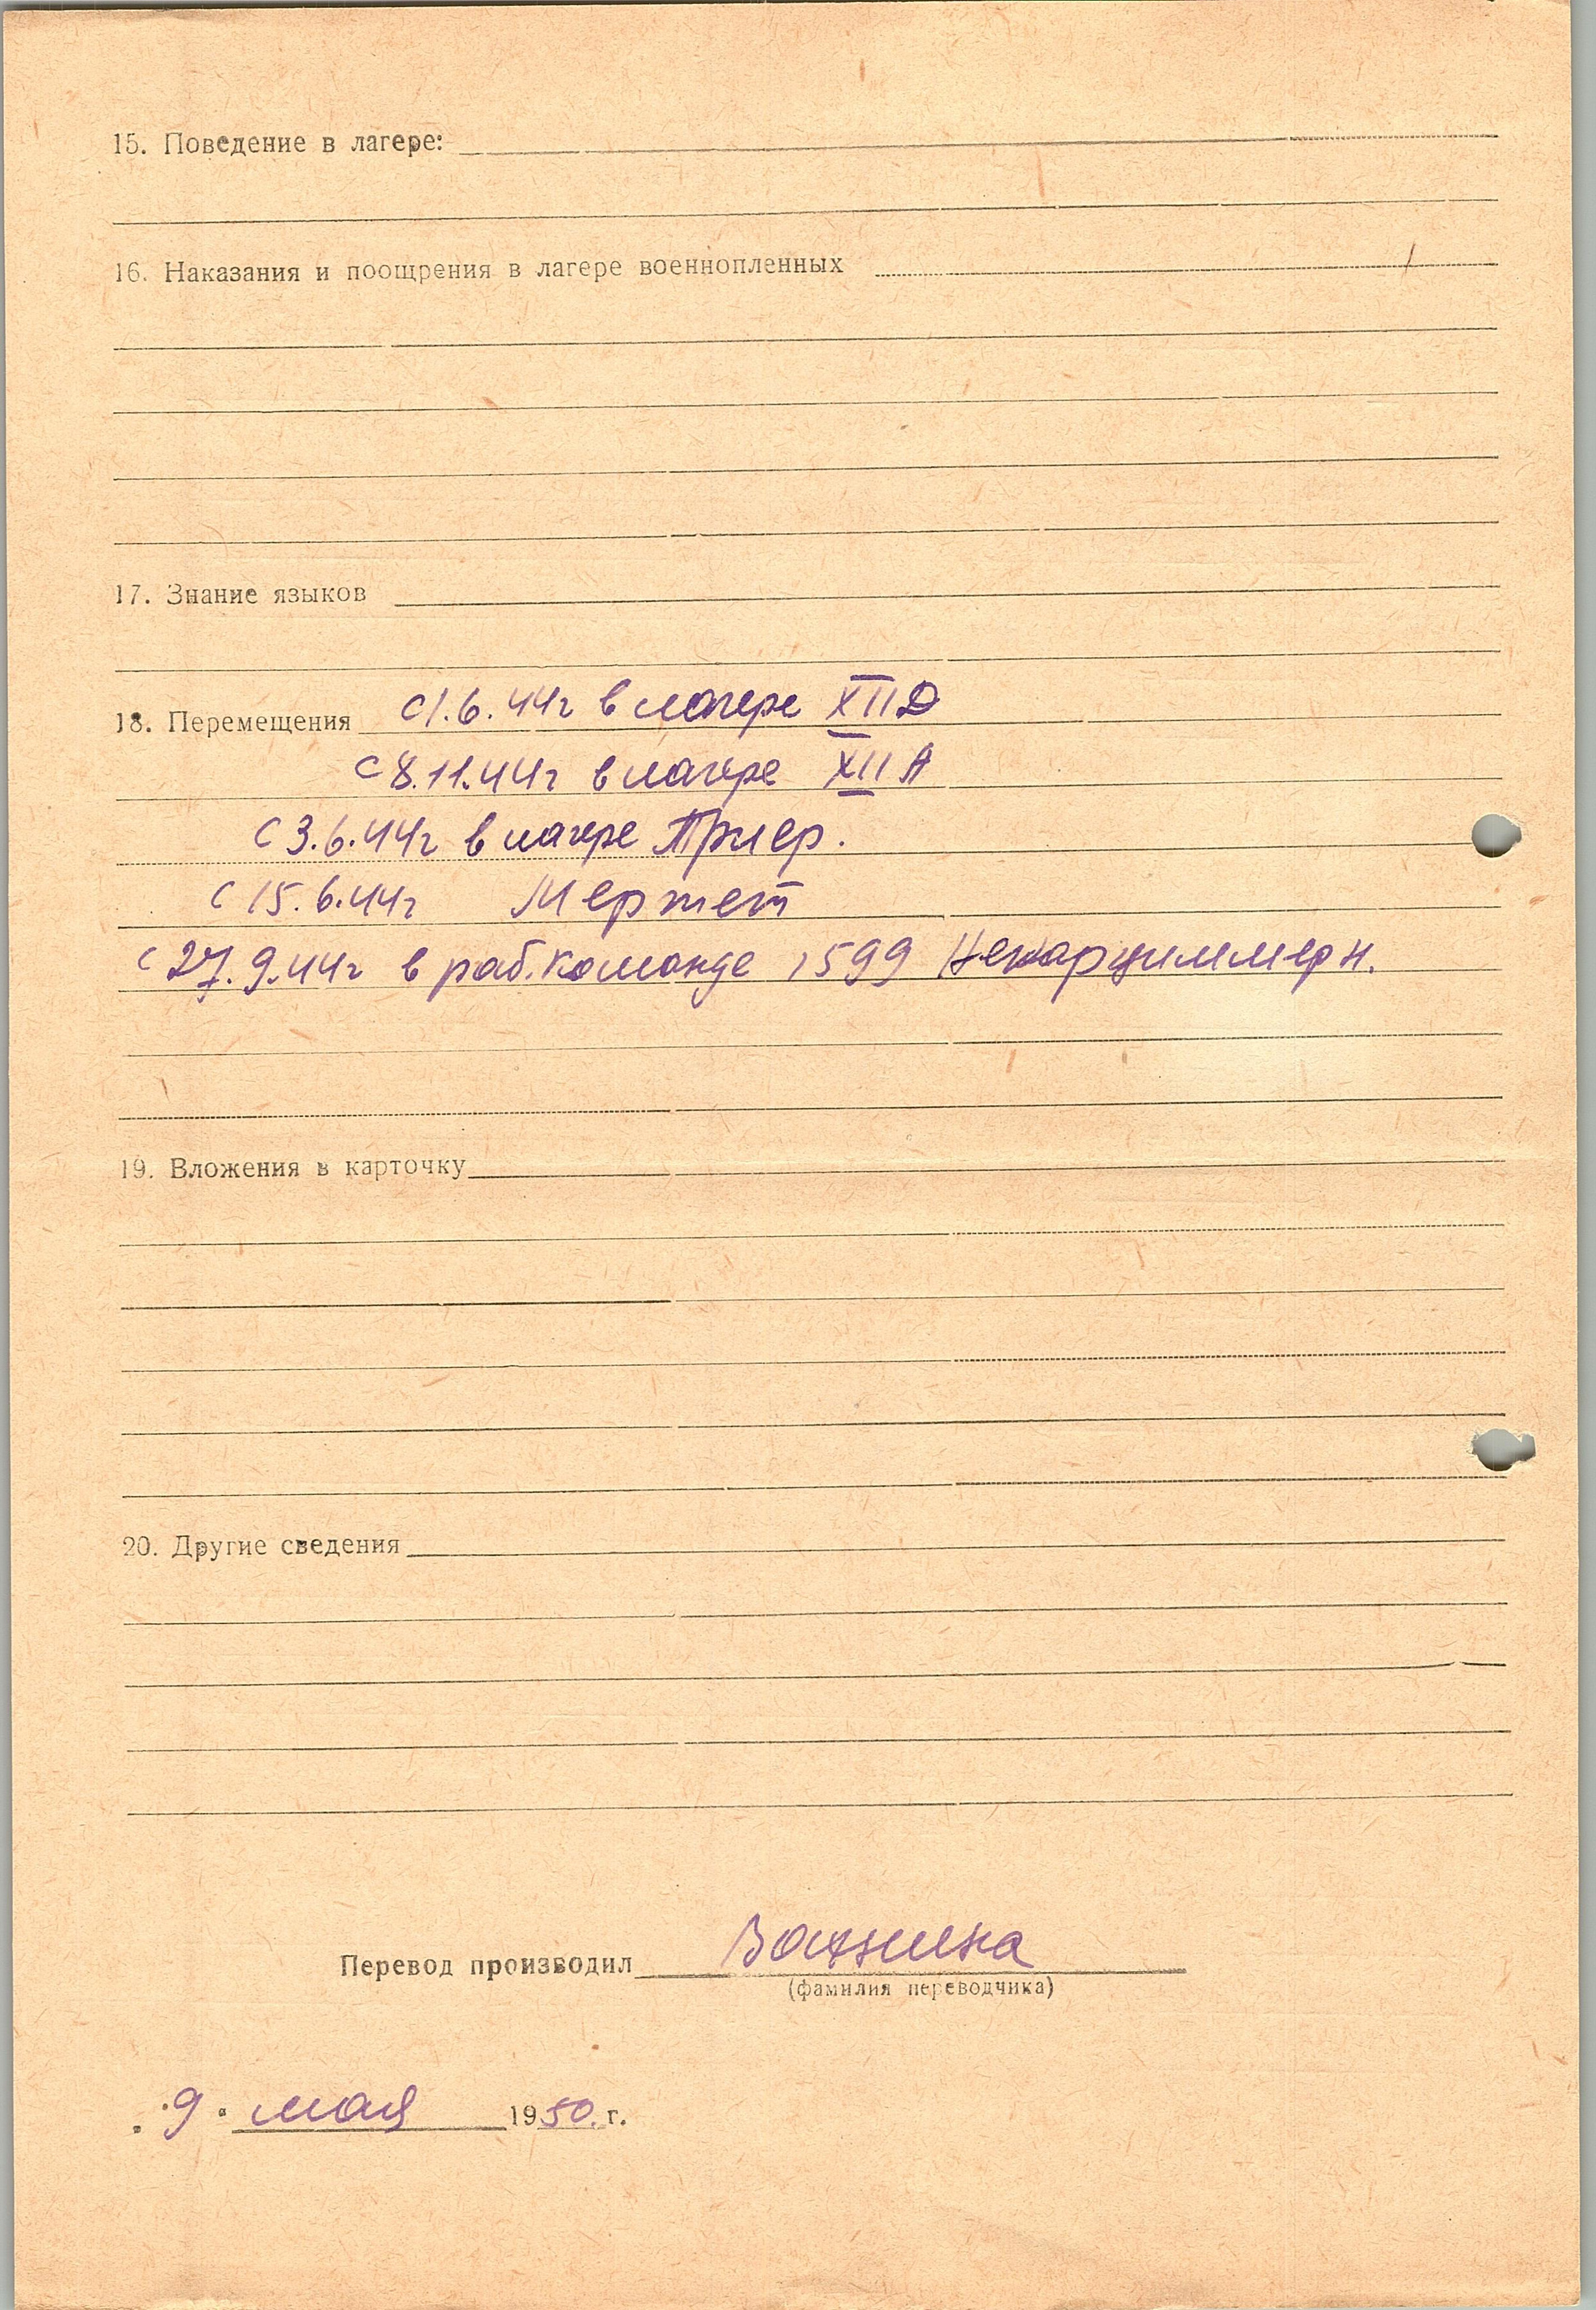 15. Поведение в лагере:
16. Наказания и поощрения в лагере военнопленных
17. Знание языков
18. Перемещения с 1.6.44г в лагере XII Д
с 8.11.44г в лагере XII А
с 3.6.44г в лагере Трир.
с 15.6.44г Мерте
с 27.9.44г в раб. команде 1599 Некарциммерн.
19. Вложения в карточку
20. Другие сведения
Перевод производил Важнина
(фамилия переводчика)
"9" мая 1950. г.